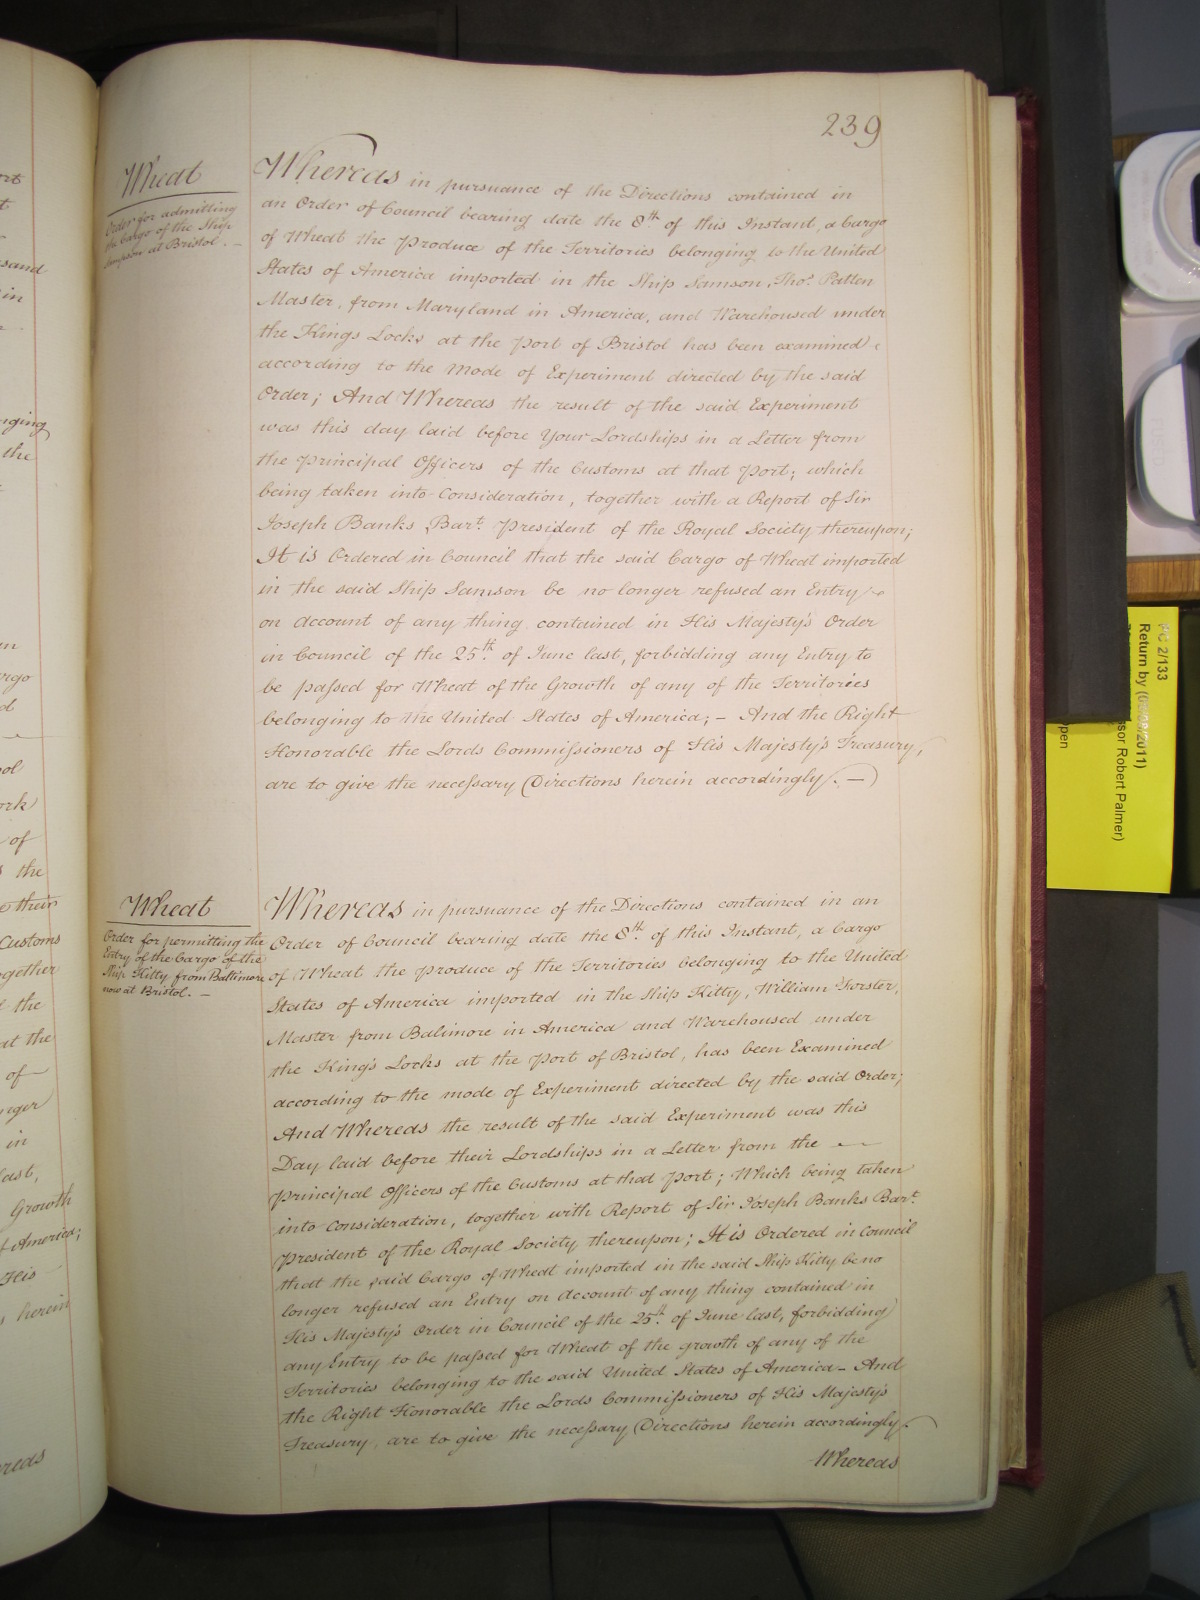 239
Wheat
Order for admitting
the Cargo of the Ship
Sampson at Bristol. —
Whereas in pursuance of the Directions contained in
an Order of Council bearing date the 8th of this Instant, a Cargo
of Wheat the Produce of the Territories belonging to the United
States of America imported in the Ship Samson, Thos. Patten
Master, from Maryland in America, and Warehoused under
the Kings Locks at the Port of Bristol has been examined
according to the Mode of Experiment directed by the said
Order; And Whereas the result of the said Experiment
was this day laid before Your Lordships in a Letter from
the Principal Officers of the Customs at that Port; which
being taken into Consideration, together with a Report of Sir
Joseph Banks, Bart. President of the Royal Society thereupon;
It is Ordered in Council that the said Cargo of Wheat imported
in the said Ship Samson be no longer refused an Entry
on Account of any thing contained in His Majesty's Order
in Council of the 25th. of June last, forbidding any Entry to
be passed for Wheat of the Growth of any of the Territories
belonging to the United States of America; — And the Right
Honorable the Lords Commissioners of His Majesty's Treasury,
are to give the necessary Directions herein accordingly. —
Wheat
Order for permitting the
Entry of the Cargo of the
Ship Kitty from Baltimore
now at Bristol. —
Whereas in pursuance of the Directions contained in an
Order of Council bearing date the 8th. of this Instant, a Cargo
of Wheat the Produce of the Territories belonging to the United
States of America imported in the Ship Kitty, William Forster,
Master from Balimore in America and Warehoused under
the King's Locks at the Port of Bristol, has been Examined
according to the mode of Experiment directed by the said Order;
And Whereas the result of the said Experiment was this
Day laid before their Lordships in a Letter from the
Principal Officers of the Customs at that Port; Which being taken
into Consideration, together with Report of Sir Joseph Banks Bart.
President of the Royal Society thereupon; It is Ordered in Council
that the said Cargo of Wheat imported in the said Ship Kitty be no
longer refused an Entry on Account of any thing contained in
His Majesty's Order in Council of the 25th. of June last, forbidding
any Entry to be passed for Wheat of the growth of any of the
Territories belonging to the said United States of America — And
the Right Honorable the Lords Commissioners of His Majesty's
Treasury, are to give the necessary Directions herein accordingly.
Whereas
PC 2/133
Return by (09/08/2011)
sor Robert Palmer)
pen